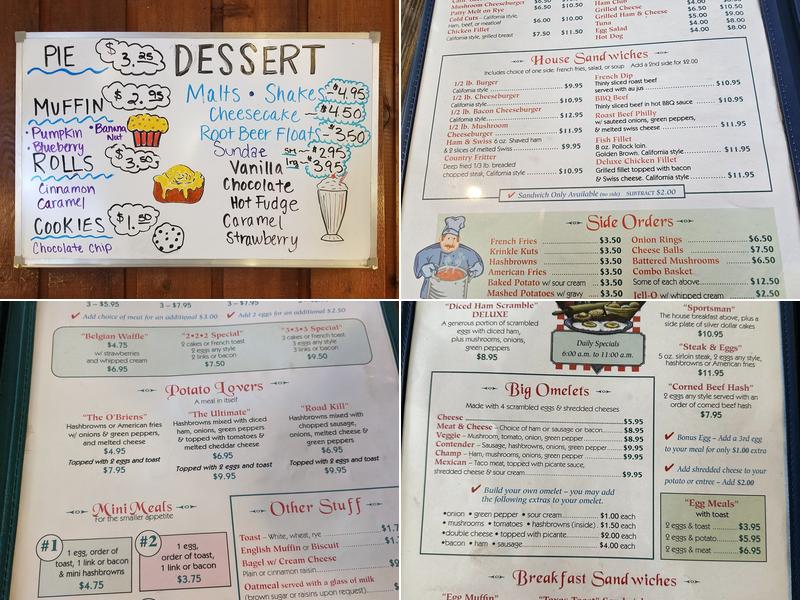 PIE
$3.25
DESSERT
MUFFIN
$2.95
• Pumpkin • Banana Nut
• Blueberry
ROLLS
$3.50
Cinnamon
Caramel
COOKIES
$1.50
Chocolate chip
Malts • Shakes $4.95
Cheesecake $4.50
Root Beer Floats $3.50
Sundae sm $2.95
lrg $3.95
Vanilla
Chocolate
Hot Fudge
Caramel
Strawberry
Mushroom Cheeseburger
Patty Melt on Rye $6.50 $10.50
Cold Cuts - California style,
ham, beef, or meatloaf $6.00 $10.00
Chicken Fillet
California style, grilled breast $7.50 $11.50
Ham Club
Grilled Cheese
Grilled Ham & Cheese $5.00 $9.00
Tuna $4.00 $8.00
Egg Salad $4.00 $8.00
Hot Dog
House Sandwiches
Includes choice of one side: French fries, salad, or soup Add a 2nd side for $2.00
1/2 lb. Burger
California style $9.95
1/2 lb. Cheeseburger
California style $10.95
1/2 lb. Bacon Cheeseburger
California style $12.95
1/2 lb. Mushroom
Cheeseburger $11.95
Ham & Swiss 6 oz. Shaved ham
& 2 slices of melted Swiss $9.95
Country Fritter
Deep fried 1/3 lb. breaded
chopped steak, California style $10.95
French Dip
Thinly sliced roast beef
served with au jus $10.95
BBQ Beef
Thinly sliced beef in hot BBQ sauce $10.95
Roast Beef Philly
w/ sauteed onions, green peppers,
& melted swiss cheese $11.95
Fish Fillet
8 oz. Pollock loin.
Golden Brown. California style $11.95
Deluxe Chicken Fillet
Grilled fillet topped with bacon
& Swiss cheese. California style $11.95
✓ Sandwich Only Available (no side) SUBTRACT $2.00
Side Orders
French Fries $3.50
Krinkle Kuts $3.50
Hashbrowns $3.50
American Fries $3.50
Baked Potato w/ sour cream $3.50
Mashed Potatoes w/ gravy $3.50
Onion Rings $6.50
Cheese Balls $7.50
Battered Mushrooms $6.50
Combo Basket
Some of each above $12.50
Jell-O w/ whipped cream $2.50
3 – $5.95 3 – $7.95 3 – $7.95
✓ Add choice of meat for an additional $3.00 ✓ Add 2 eggs for an additional $2.50
"Belgian Waffle"
$4.75
w/ strawberries
and whipped cream
$6.95
"2•2•2 Special"
2 cakes or french toast
2 eggs any style
2 links or bacon
$7.50
"3•3•3 Special"
3 cakes or french toast
3 eggs any style
3 links or bacon
$9.50
Potato Lovers
A meal in itself
"The O'Briens"
Hashbrowns or American fries
w/ onions & green peppers,
and melted cheese
$4.95
Topped with 2 eggs and toast
$7.95
"The Ultimate"
Hashbrowns mixed with diced
ham, onions, green peppers
& topped with tomatoes &
melted cheddar cheese
$6.95
Topped with 2 eggs and toast
$9.95
"Road Kill"
Hashbrowns mixed with
chopped sausage,
onions, melted cheese &
green peppers
$6.95
Topped with 2 eggs and toast
$9.95
Mini Meals
For the smaller appetite
#1
1 egg, order of
toast, 1 link or bacon
& mini hashbrowns
$4.75
#2
1 egg,
order of toast,
1 link or bacon
$3.75
Other Stuff
Toast – White, wheat, rye
English Muffin or Biscuit
Bagel w/ Cream Cheese
Plain or cinnamon raisin
Oatmeal served with a glass of milk
(brown sugar or raisins upon request)
"Diced Ham Scramble"
DELUXE
A generous portion of
scrambled
eggs with diced ham,
plus mushrooms, onions,
green peppers
$8.95
Daily Specials
6:00 a.m. to 11:00 a.m.
"Sportsman"
The house breakfast above, plus a
side plate of silver dollar cakes
$10.95
"Steak & Eggs"
5 oz. sirloin steak, 2 eggs any style,
hashbrowns or American fries
$11.95
"Corned Beef Hash"
2 eggs any style served with an
order of corned beef hash
$7.95
Big Omelets
Made with 4 scrambled eggs & shredded cheeses
Cheese $5.95
Meat & Cheese – Choice of ham or sausage or bacon $8.95
Veggie – Mushroom, tomato, onion, green pepper $8.95
Contender – Sausage, hashbrowns, onions, green peppers $9.95
Champ – Ham, mushrooms, onions, green peppers $9.95
Mexican – Taco meat, topped with picante sauce,
shredded cheese & sour cream $9.95
✓ Build your own omelet – you may add
the following extras to your omelet.
•onion •green pepper •sour cream $1.00 each
•mushrooms •tomatoes •hashbrowns (inside) $1.50 each
•double cheese •topped with picante $2.00 each
•bacon •ham •sausage $4.00 each
✓ Bonus Egg – Add a 3rd egg
to your meal for only $1.00 extra
✓ Add shredded cheese to your
potato or entree – Add $2.00
"Egg Meals"
with toast
2 eggs & toast $3.95
2 eggs & potato $5.95
2 eggs & meat $6.95
Breakfast Sandwiches
"Egg Muffin"